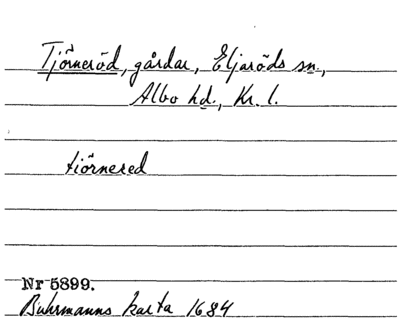 Tjörneröd, gårdar, Eljaröds sn.,
Albo hd., Kr. l.
tiörnered
Nr 5899.
Buhrmanns karta 1684